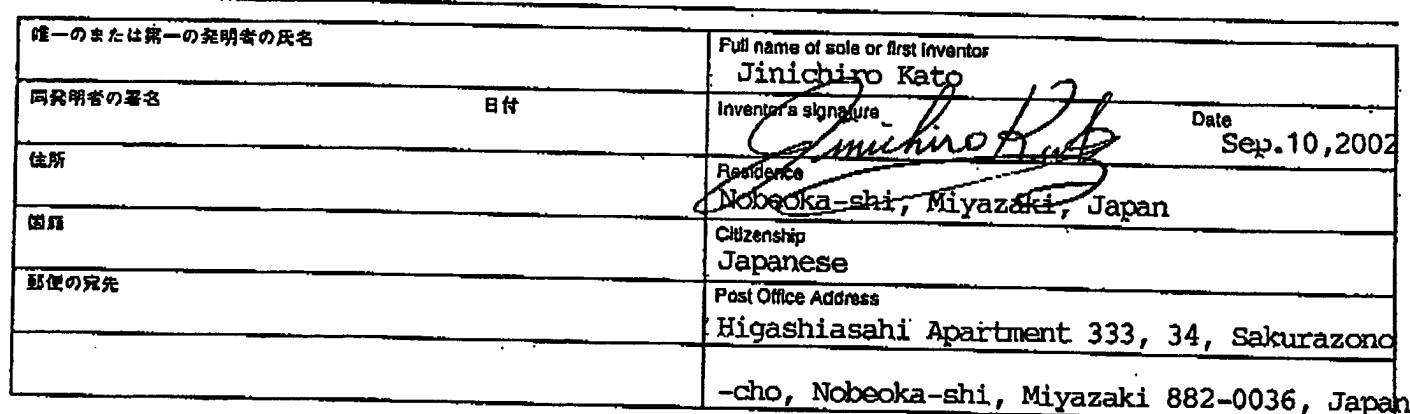 唯一のまたは第一の発明者の氏名
Full name of sole or first inventor
Jinichiro Kato
同発明者の署名 日付
Inventor's signature Date
Jinichiro Kato Sep.10,2002
住所
Residence
Nobeoka-shi, Miyazaki, Japan
国籍
Citizenship
Japanese
郵便の宛先
Post Office Address
Higashiasahi Apartment 333, 34, Sakurazono
-cho, Nobeoka-shi, Miyazaki 882-0036, Japan